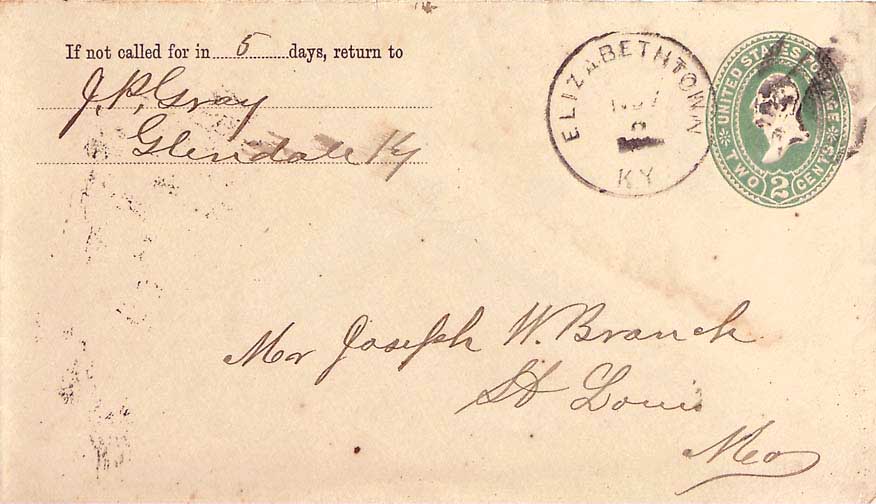 If not called for in 5 days, return to
J. P. Gray
Glendale Ky
ELIZABETHTOWN
NOV
KY
UNITED STATES POSTAGE
TWO 2 CENTS
Mr Joseph W. Branch
St Louis
Mo